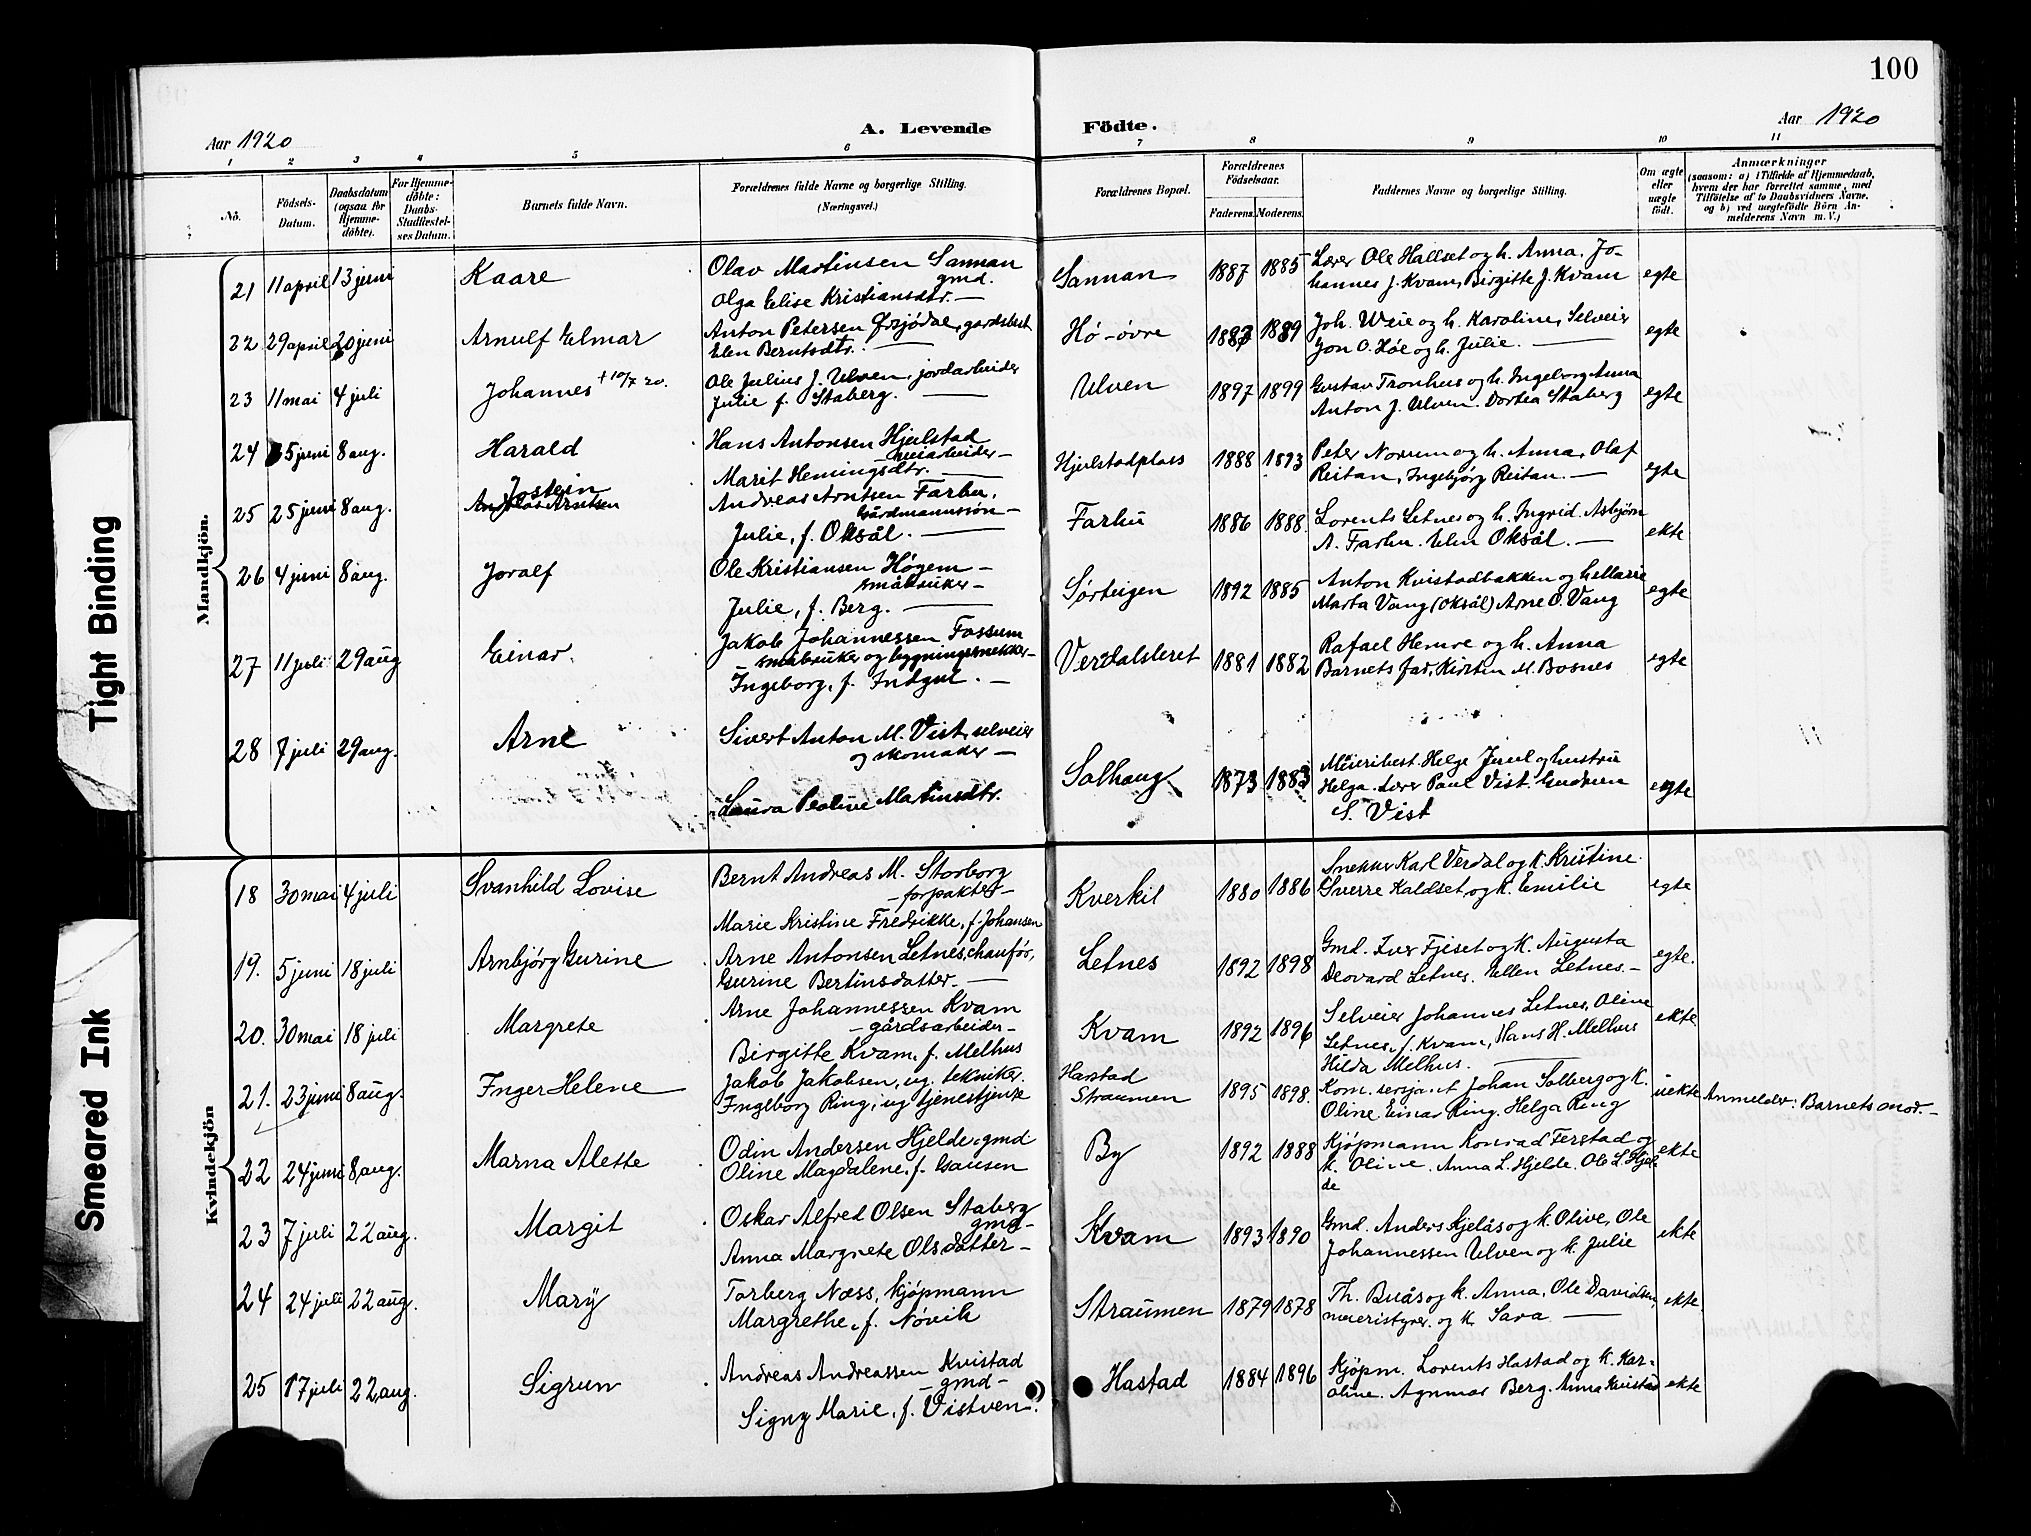 100
Aar 1920
A. Levende Födte.
Aar 1920
1 2 3 4 5 6 7 8 9 10 11
No.
Födsels-
Datum.
Daabsdatum
(ogsaa for
Hjemme-
döbte).
For Hjemme-
döbte:
Daabs-
Stadfæstel-
ses Datum.
Barnets fulde Navn.
Forældrenes fulde Navne og borgerlige Stilling.
(Næringsvei.)
Forældrenes Bopæl.
Forældrenes
Födselsaar.
Faderens. Moderens.
Faddernes Navne og borgerlige Stilling.
Om ægte
eller
uægte
födt.
Anmærkninger
(saasom: a) i Tilfælde af Hjemmedaab,
hvem der har forrettet samme, med
Tilföielse af to Daabsvidners Navne,
og b) ved uægtefödte Börn An-
melderens Navn m. V.)
Mandkjön.
21 11 april 13 juni Kaare
Olav Martinsen Sannan
gmd.
Olga Elise Kristiansdtr. —
Sannan 1887 1885
Lærer Ole Hallset og h. Anna. Jo-
hannes J. Kvam, Birgitte J. Kvam
egte
22 29 april 20 juni Arnulf Elmar
Anton Petersen Ørsjødal, gardsbest
Elen Berntsdtr. —
Hø-øvre 1883 1889
Joh. Weie og h. Karoline, Selveier
Jon O. Høe og h. Julie. —
egte
23 11 mai 4 juli Johannes † 10/7 20.
Ole Julius J. Ulven, jordarbeider
Julie f. Staberg. —
Ulven 1897 1899
Gustav Tronhus og h. Ingeborg Anna
Anton J. Ulven. Dortea Staberg
egte
24 5 juni 8 aug. Harald
Hans Antonsen Hjelstad
Marit Hemingsdtr. —
Hjelstadplass 1888 1893
Peter Norum og h. Anna, Olaf
Reitan, Ingebjørg Reitan. —
egte
25 25 juni 8 aug. Jostein
Andreas Arntsen
Andreas Arntsen Farhu,
Gårdmannssøn —
Julie, f. Oksål. —
Farhu 1886 1888.
Lorents Letnes og h. Ingrid. Asbjørn
A. Farhu. Elen Oksål. —
ekte
26 4 juni 8 aug. Joralf
Ole Kristiansen Høgem —
småbruker —
Julie, f. Berg. —
Sørteigen 1892 1885
Anton Kvistadbakken og h. Marie
Marta Vang (Oksål) Arne O. Vang
egte
27 11 juli 29 aug Einar.
Jakob Johannessen Fossum
småbruker og bygningssnekker —
Ingeborg, f. Indgul. —
Verdalsleret 1881 1882
Rafael Hemre og h. Anna
Barnets far, Kirsten M. Bosnes
egte
28 7 juli 29 aug. Arne
Sivert Anton M. Vist, selveier
og skomaker —
Laura Peoline Martinsdtr.
Solhaug 1873 1883
Meieribest. Helge Juul og hustru
Helga. Lærer Paul Vist. Gudrun
S. Vist
egte
Kvindekjön
18 30 mai 4 juli Svanhild Lovise
Bernt Andreas M. Storborg
— forpakter —
Marie Kristine Fredrikke, f. Johansen
Kverkil 1880 1886
Snekker Karl Verdal og k. Kristine
Sverre Kaldset og k. Emilie
egte
19. 5 juni 18 juli Arnbjørg Gurine
Arne Antonsen Letnes, chauffør,
Gurine Bertinsdatter. —
Letnes 1892 1898
Gmd. Iver Fjeset og k. Augusta
Deovard Letnes. Ellen Letnes. —
egte.
20. 30 mai 18 juli Margrete
Arne Johannessen Kvam
— gårdsarbeider —
Birgitte Kvam, f. Melhus
Kvam 1892 1896
Selveier Johannes Letnes, Oline
Letnes, f. Kvam, Hans H. Melhus
Hilda Melhus. —
ekte
21. 23 juni 8 aug. Inger Helene
Jakob Jakobsen, ug. tekniker.
Ingeborg Ring, ug tjenestjenke
Hastad
Straumen 1895 1898.
Kom. sersjant Johan Solberg og k.
Oline. Einar Ring. Helga Ring
uekte Anmelder: Barnets mor. —
22 24 juni 8 aug. Marna Alette
Odin Andersen Hjelde, gmd
Oline Magdalene, f. Gausen
By 1892 1888
Kjøpmann Konrad Ferstad og
k. Oline. Anna L. Hjelde. Ole L. Hjel-
de
ekte
23 7 juli 22 aug. Margit
Oskar Alfred Olsen Staberg
gmd —
Anna Margrete Olsdatter —
Kvam 1893 1890
Gmd. Anders Kjelås og k. Olive, Ole
Johannessen Ulven og k. Julie
ekte
24 24 juli 22 aug. Mary
Torberg Næss, kjøpmann
Margrethe, f. Nøvik
Straumen 1879 1878
Th. Buås og k. Anna, Ole Davidsen,
meieristyrer. og k. Sara. —
ekte
25 17 juli 22 aug. Sigrun
Andreas Andreassen Kvistad
— gmd —
Signy Marie, f. Vistven.
Hastad 1884 1896
Kjøpm. Lorents Hastad og k. Kar-
oline. Agnmar Berg. Anna Kvistad
ekte
Tight Binding
Smeared Ink